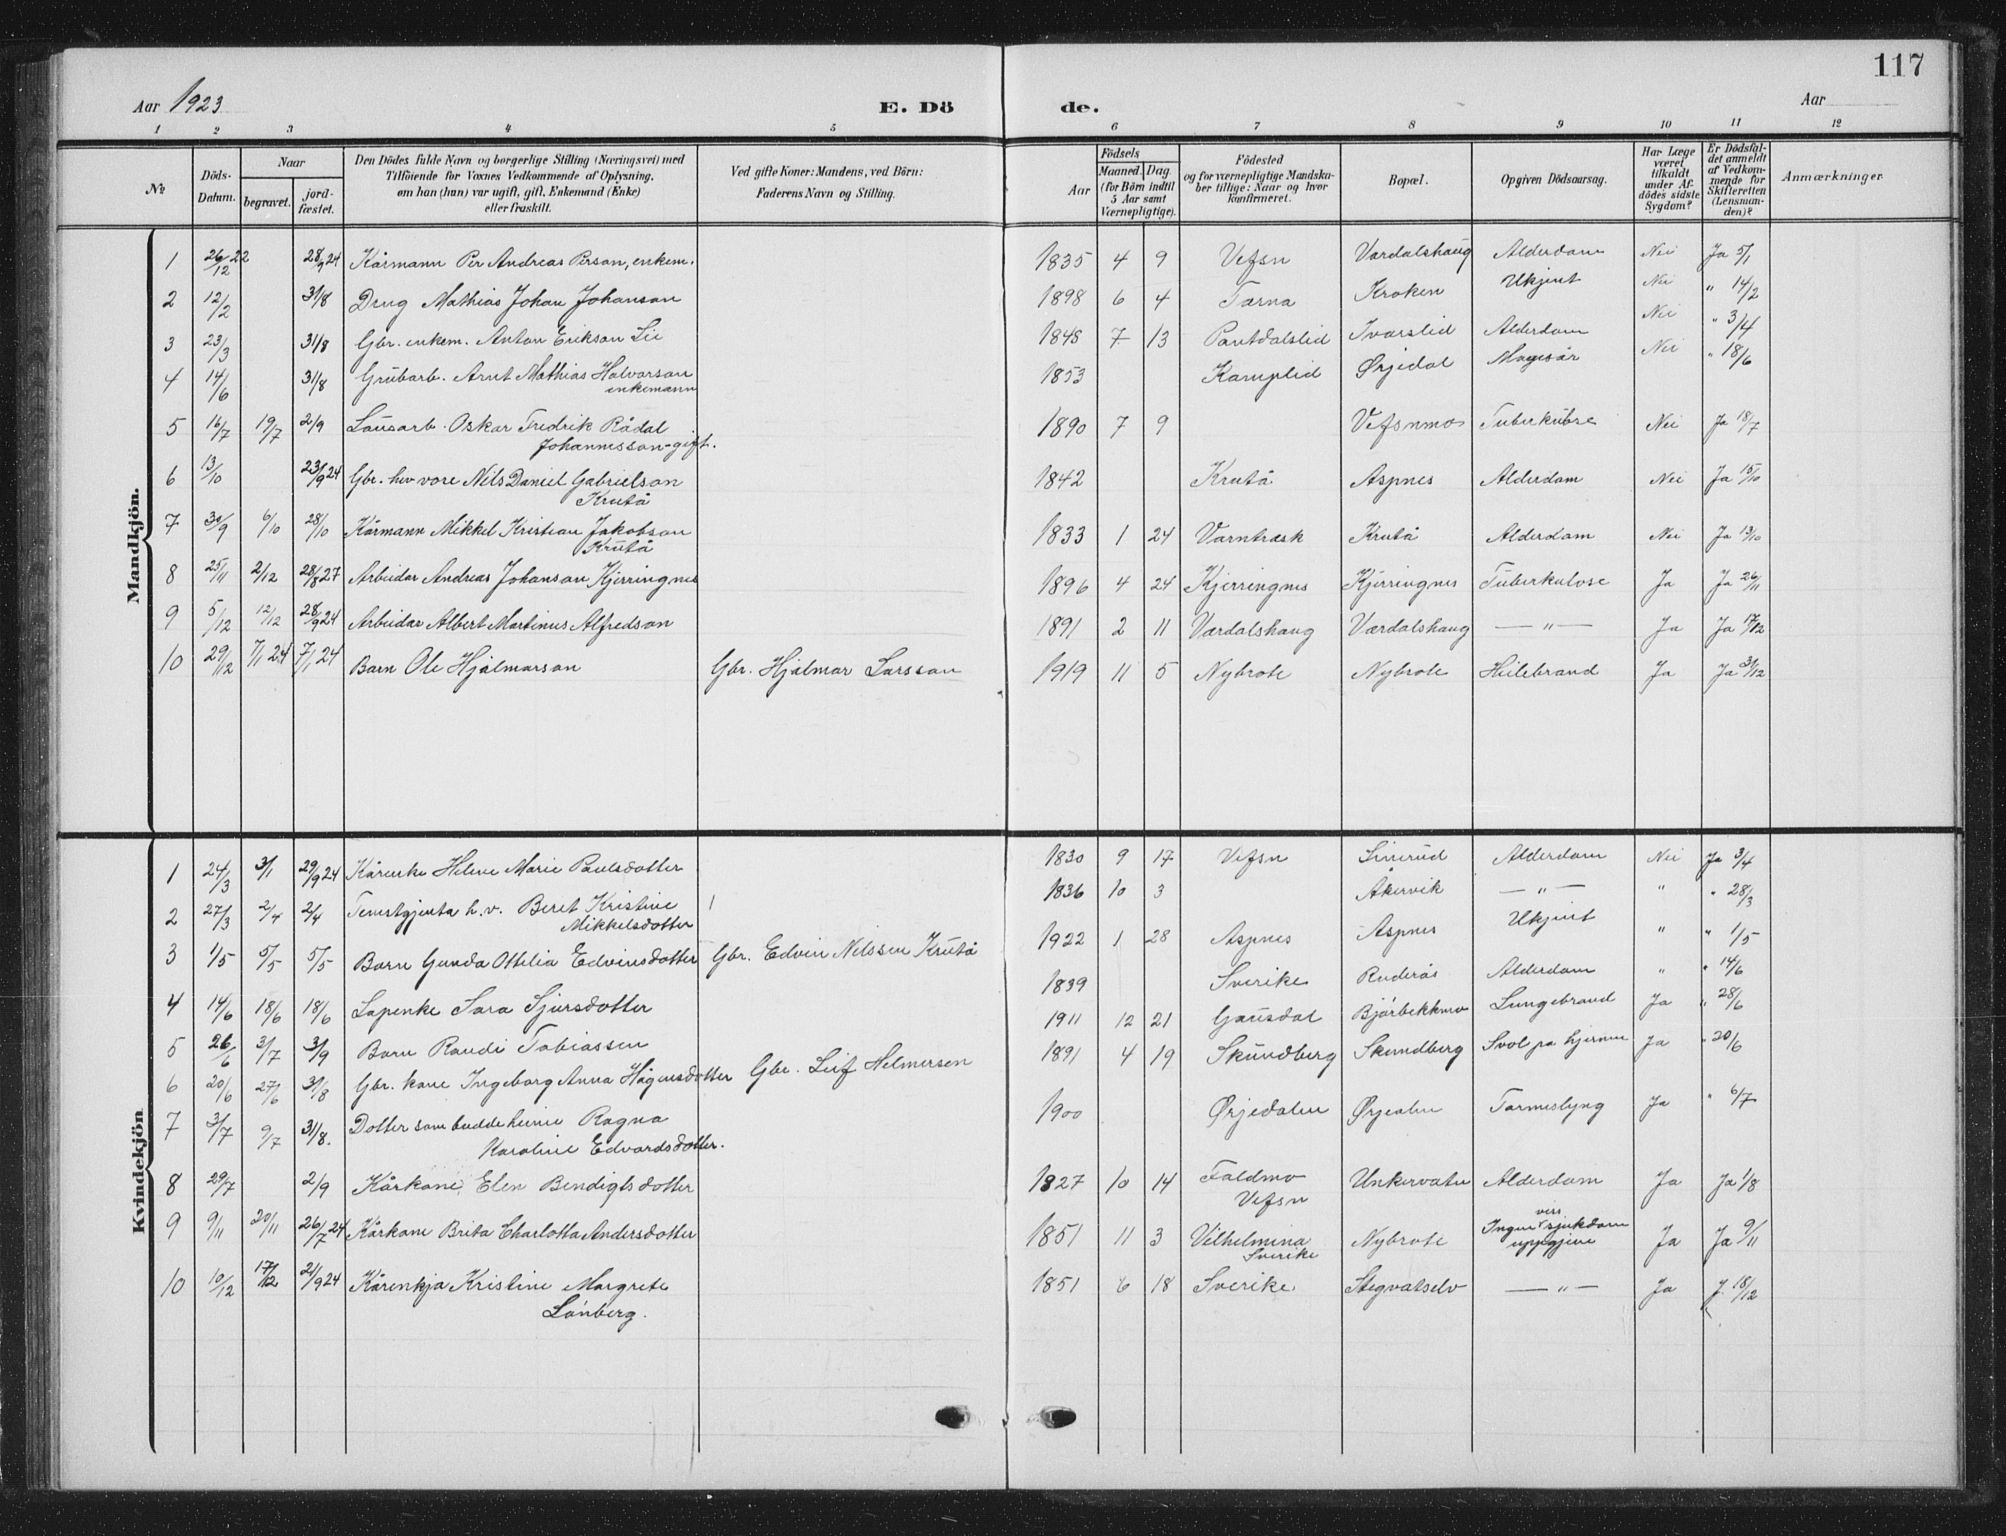 117
Aar 1923
E. Dö
de.
Aar
1 2 3 4 5 6 7 8 9 10 11 12
№
Döds-Datum.
Naar
begravet.
jord-fæstet.
Den Dödes fulde Navn og borgerlige Stilling (Næringsvei) med
Tilföiende for Voxnes Vedkommende af Oplysning,
om han (hun) var ugift, gift, Enkemand (Enke)
eller fraskilt.
Ved gifte Koner: Mandens, ved Börn:
Faderens Navn og Stilling.
Födsels
Aar
Maaned. Dag.
(for Börn indtil
5 Aar samt
Værnepligtige).
Födested
og for værnepligtige Mandska-
ber tillige: Naar og hvor
konfirmeret.
Bopæl.
Opgiven Dödsaarsag.
Har Læge
været
tilkaldt
under Af-
dödes sidste
Sygdom?
Er Dödsfal-
det anmeldt
af Vedkom-
mende for
Skifteretten
(Lensman-
den)?
Anmærkninger
Mandkjön.
1 26/12 22 28/9 24 Kårmann Per Andreas Person, enkem. 1835 4 9 Vefsn Vardalshaug Alderdom Nei Ja 5/1
2 12/2 31/8 Dreng Mathias Johan Johanson 1898 6 4 Tærna Kroken Ukjent Nei " 14/2
3 23/3 31/8 Gbr. enkem. Anton Erikson Lie 1848 7 13 Pantdalslid Ivarslid Alderdom Nei " 3/4
4 14/6 31/8 Grubarb. Arnt Mathias Halvorson
enkemann 1853 Kamplid Ørjedal Magesår Nei " 18/6
5 16/7 19/7 2/9 Lausarb. Oskar Fredrik Rådal
Johannesson - gift. 1890 7 9 Vefsnmo Tuberkulose Nei Ja 18/7
6 13/10 23/9 24 Gbr. hev vore Nils Daniel Gabrielson
Krutå 1842 Krutå Aspnes Alderdom Nei Ja 15/10
7 30/9 6/10 28/10 Kårmann Mikkel Kristian Jakobson
Krutå 1833 1 24 Varntræsk Krutå Alderdom Nei Ja 13/10
8 25/11 2/12 28/8 27 Arbeidar Andreas Johanson Kjerringnes 1896 4 24 Kjerringnes Kjerringnes Tuberkulose Ja Ja 26/11
9 5/12 12/12 28/9 24 Arbeidar Albert Martinus Alfredson 1891 2 11 Værdalshaug Værdalshaug — " — Ja Ja 17/12
10 29/12 7/1 24 7/1 24 Barn Ole Hjalmarson Gbr. Hjalmar Larsson 1919 11 5 Nybrote Nybrote Heilebrand Ja Ja 31/12
Kvindekjön
1 24/3 3/1 29/9 24 Kårenke Helene Marie Paulsdotter 1830 9 17 Vefsn Alderdom Nei Ja 3/4
2 27/3 2/4 2/4 Tenestgjenta h.v. Beret Kristine
Mikkelsdotter 1836 10 3 Åkervik — " — " " 28/3
3 1/5 5/5 5/5 Barn Gunda Ottilia Edvinsdotter Gbr. Edvin Nilssen Krutå 1922 1 28 Aspnes Aspnes Ukjent " " 1/5
4 14/6 18/6 18/6 Lapenke Sara Sjursdotter 1839 Sverike Ruderås Alderdom " " 14/6
5 26/6 3/7 3/9 Barn Randi Tobiassen 1911 12 21 Gausdal Bjørbekkmo Lungebrand Ja " 28/6
6 20/6 27/6 31/8 Gbr. kone Ingeborg Anna Hågensdotter Gbr. Leif Helmersen 1891 4 19 Skundberg Skundberg Svol på hjernen Ja " 20/6
7 3/7 9/7 31/8. Dotter som budde heime Ragna
Karoline Edvardsdotter. 1900 Ørjedalen Ørjealen Tarmeslyng Ja " 6/7
8 29/7 2/9 Kårkone Elen Bendigtsdotter 1827 10 14 Faldmo
Vefsn Unkervatn Alderdom Ja Ja 1/8
9 9/11 20/11 26/7 24 Kårkone Brita Charlotta Andersdotter 1851 11 3 Vilhelmina
Sverike Nybrote Ingen viss sjukdom
uppgjeve Ja Ja 9/11
10 10/12 17/12 21/9 24 Kårenkja Kristine Margrete
Lönberg. 1851 6 18 Sverike Stegvatselv — " — Ja J 18/12